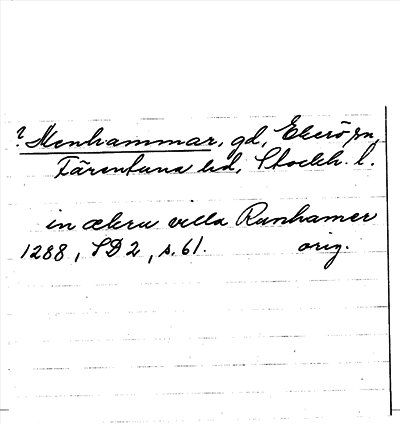 ? Menhammar, gd, Ekerö sn,
Färentuna hd, Stockh. l.
in ækru villa Runhamer
1288, SD 2, s. 61. orig.